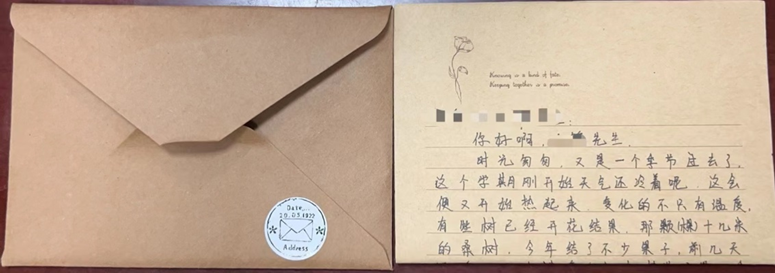 Date.
Address
Knowing is a kind of fate.
Keeping together is a promise.
你好啊，先生.
时光匆匆，又是一个季节过去了，
这个学期刚开始天气还冷着呢，这会
便又开始热起来，变化的不只有温度，
有些树已经开花结果，那颗十几米
的桑树，今年结了不少果子，前几天